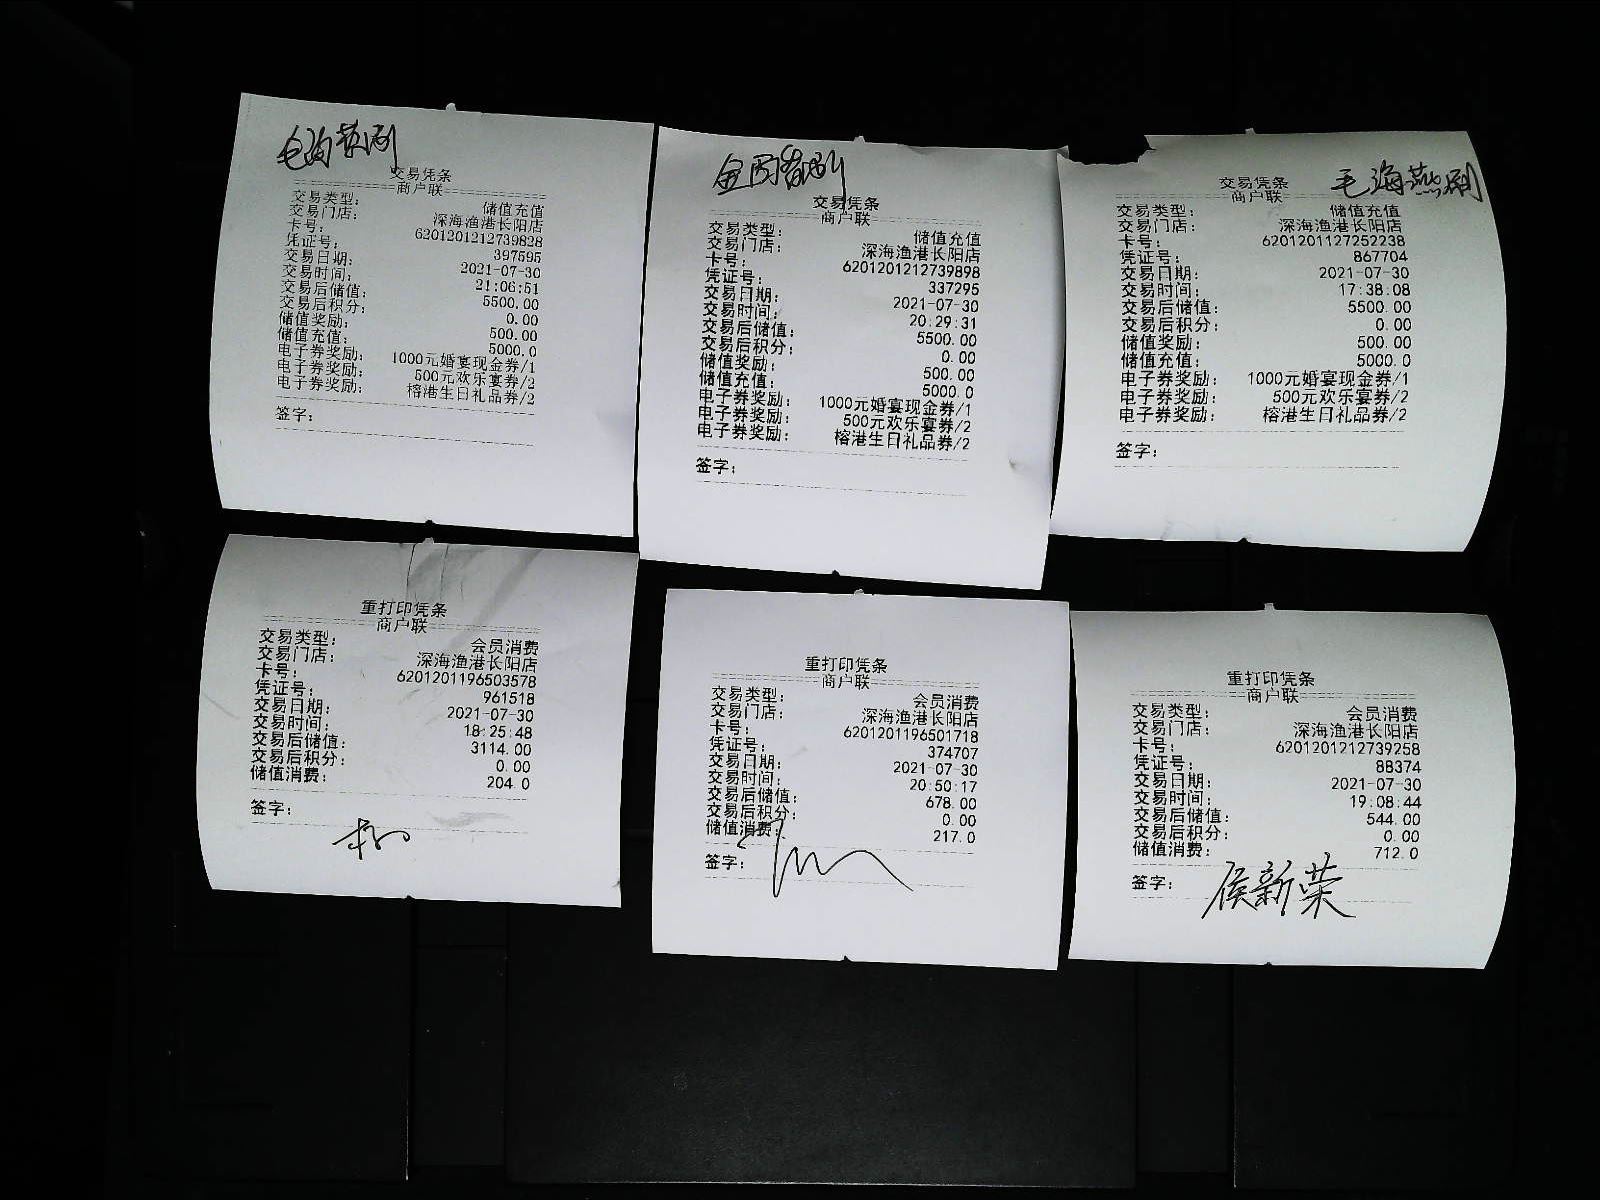 毛海燕刷
交易凭条
商户联
交易类型: 储值充值
交易门店: 深海渔港长阳店
卡号: 6201201212739828
凭证号: 397595
交易日期: 2021-07-30
交易时间: 21:06:51
交易后储值: 5500.00
交易后积分: 0.00
储值奖励: 500.00
储值充值: 5000.0
电子券奖励: 1000元婚宴现金券/1
电子券奖励: 500元欢乐宴券/2
电子券奖励: 榕港生日礼品券/2
签字:
交易凭条
商户联
交易类型: 储值充值
交易门店: 深海渔港长阳店
卡号: 6201201212739898
凭证号: 337295
交易日期: 2021-07-30
交易时间: 20:29:31
交易后储值: 5500.00
交易后积分: 0.00
储值奖励: 500.00
储值充值: 5000.0
电子券奖励: 1000元婚宴现金券/1
电子券奖励: 500元欢乐宴券/2
电子券奖励: 榕港生日礼品券/2
签字:
毛海燕刷
交易凭条
商户联
交易类型: 储值充值
交易门店: 深海渔港长阳店
卡号: 6201201127252238
凭证号: 867704
交易日期: 2021-07-30
交易时间: 17:38:08
交易后储值: 5500.00
交易后积分: 0.00
储值奖励: 500.00
储值充值: 5000.0
电子券奖励: 1000元婚宴现金券/1
电子券奖励: 500元欢乐宴券/2
电子券奖励: 榕港生日礼品券/2
签字:
重打印凭条
商户联
交易类型: 会员消费
交易门店: 深海渔港长阳店
卡号: 6201201196503578
凭证号: 961518
交易日期: 2021-07-30
交易时间: 18:25:48
交易后储值: 3114.00
交易后积分: 0.00
储值消费: 204.0
签字:
重打印凭条
商户联
交易类型: 会员消费
交易门店: 深海渔港长阳店
卡号: 6201201196501718
凭证号: 374707
交易日期: 2021-07-30
交易时间: 20:50:17
交易后储值: 678.00
交易后积分: 0.00
储值消费: 217.0
签字:
重打印凭条
商户联
交易类型: 会员消费
交易门店: 深海渔港长阳店
卡号: 6201201212739258
凭证号: 88374
交易日期: 2021-07-30
交易时间: 19:08:44
交易后储值: 544.00
交易后积分: 0.00
储值消费: 712.0
签字: 侯新荣